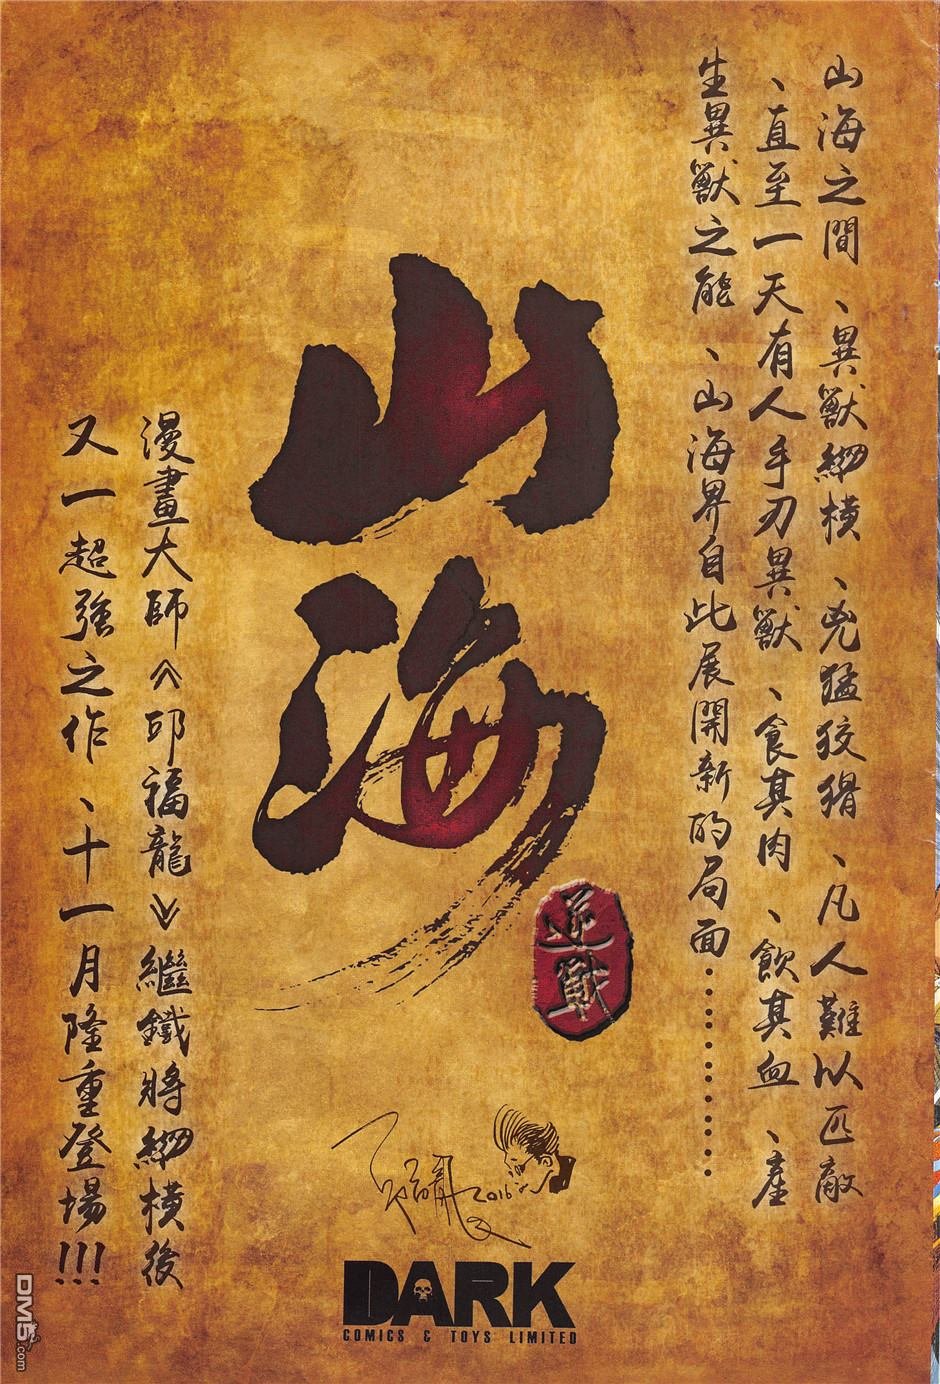 山海之間、異獸縱橫、兇猛狡猾、凡人難以匹敵
、直至一天有人手刃異獸、食其肉、飲其血、產
生異獸之能、山海界自此展開新的局面…………
山海
逆戰
漫畫大師《邱福龍》繼鐵將縱橫後
又一超強之作、十一月隆重登場!!!
2016
DARK
COMICS & TOYS LIMITED
DM5.com